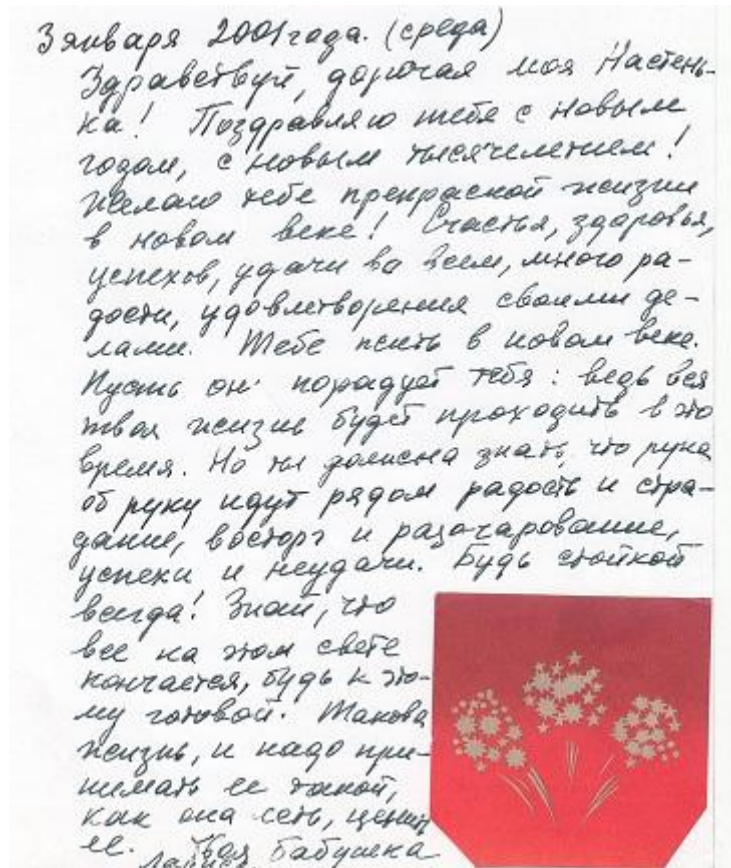 3 января 2001 года. (среда)
Здравствуй, дорогая моя Настень-
ка! Поздравляю тебя с новым
годом, с новым тысячелетием!
Желаю тебе прекрасной жизни
в новом веке! Счастья, здоровья,
успехов, удачи во всем, много ра-
дости, удовлетворения своими де-
лами. Тебе жить в новом веке.
Пусть он порадует тебя: ведь вся
твоя жизнь будет проходить в это
время. Но ты должна знать, что рука
об руку идут рядом радость и стра-
дание, восторг и разочарование,
успехи и неудачи. Будь стойкой
всегда! Знай, что
все на этом свете
кончается, будь к это-
му готовой. Такова
жизнь, и надо при-
нимать ее такой,
как она есть, ценить
ее. Твоя бабушка